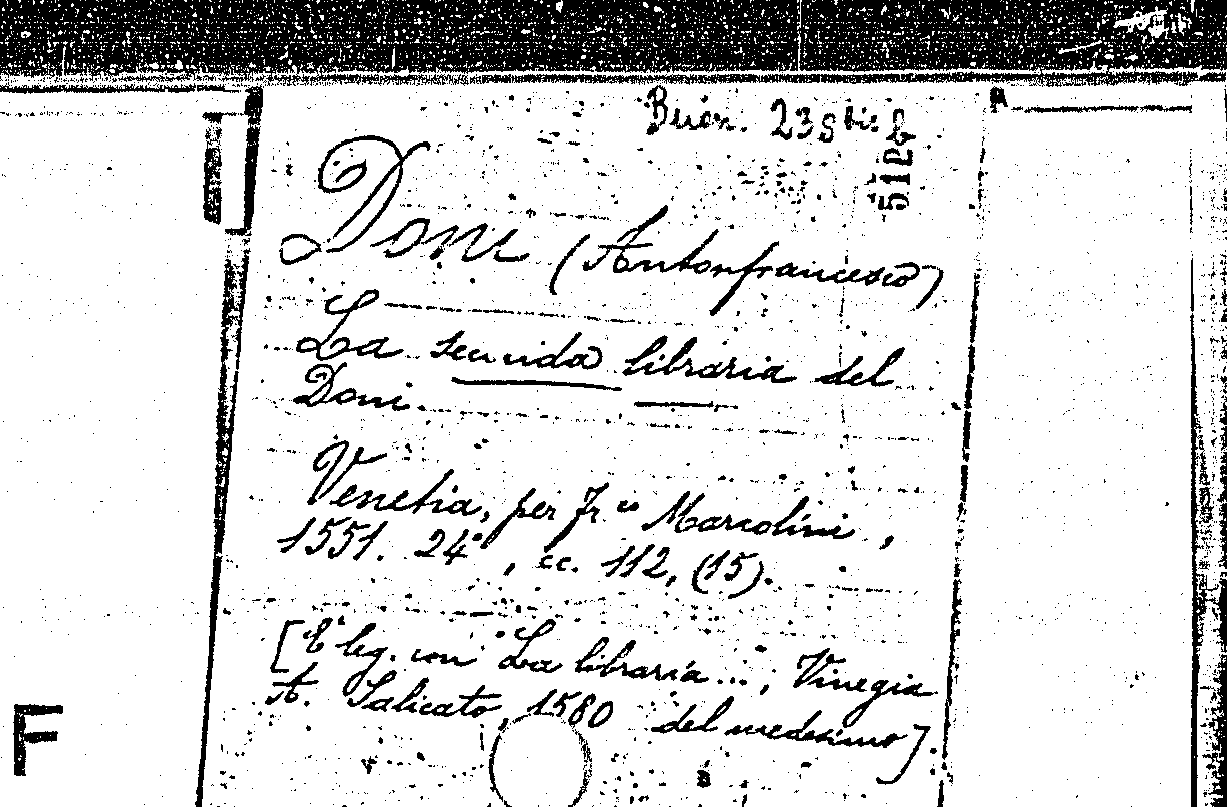 Buon. 23 9 bis
5126
Doni (Antonfrancesco)
La seconda libraria del
Doni.
Venetia, per Fr.co Marcolini,
1551. 24°, cc. 112, (15).
[È leg. con "La libraria...", Vinegia
A. Salicato, 1580 del medesimo].
F